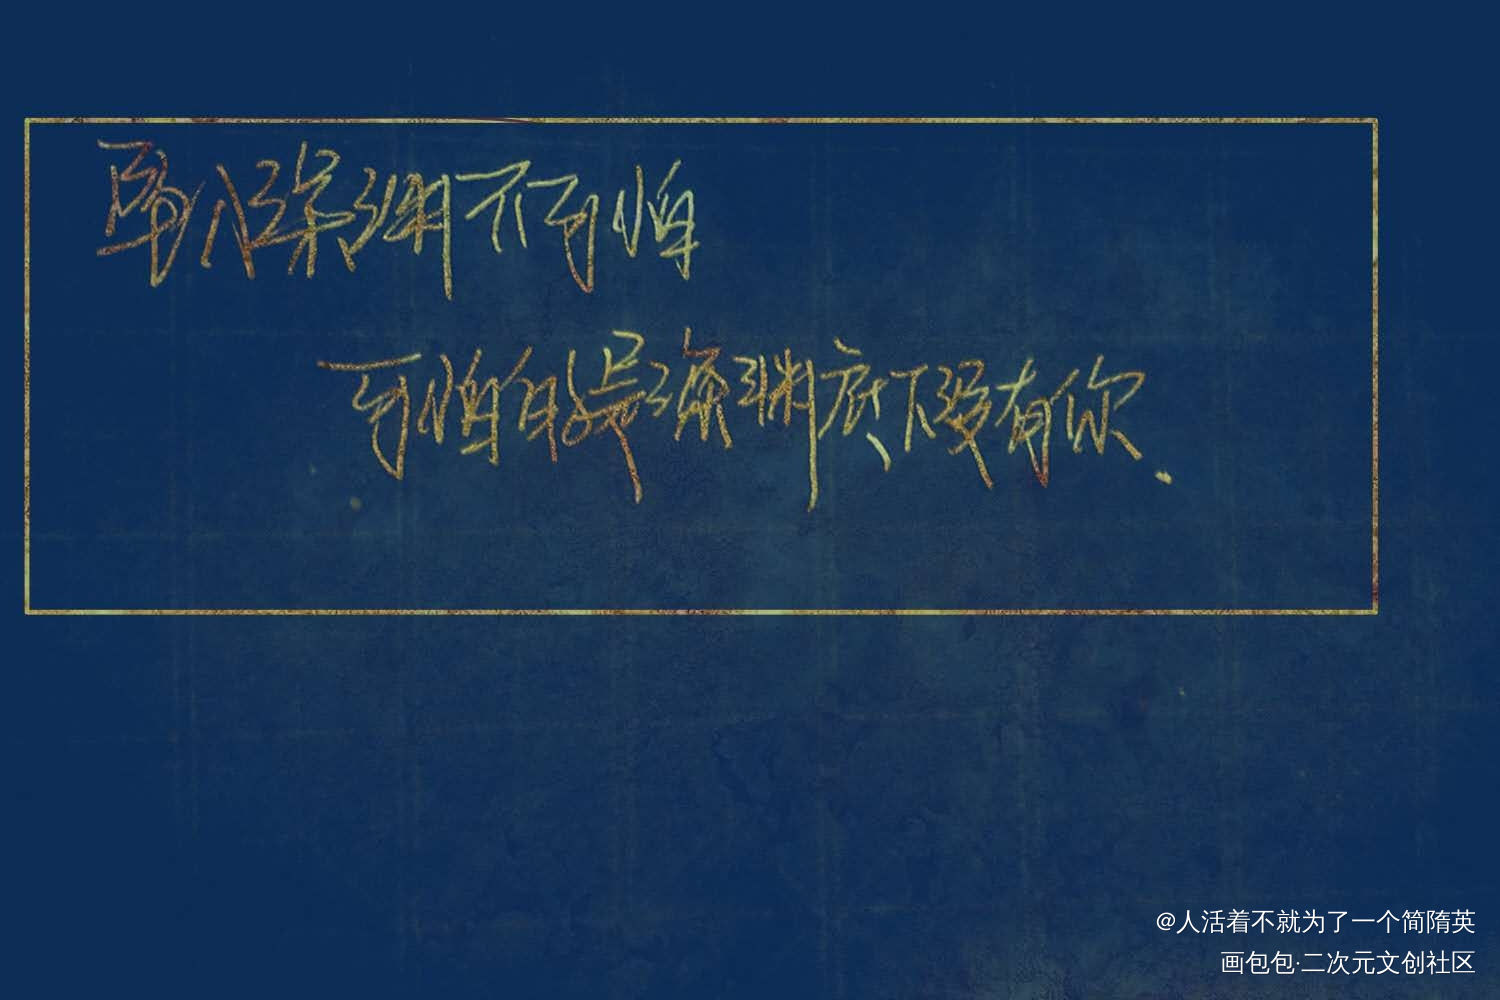 坠入深渊不可怕
可怕的是深渊底下没有你.
@人活着不就为了一个简隋英
画包包·二次元文创社区